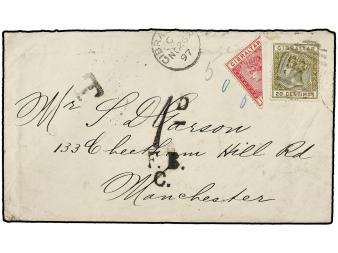 GIBRALTAR
97
GIBRALTAR
20 CENTIMOS
T
Mr S D Garson
1D
133 Cheetham Hill Rd
F. B.
C.
Manchester